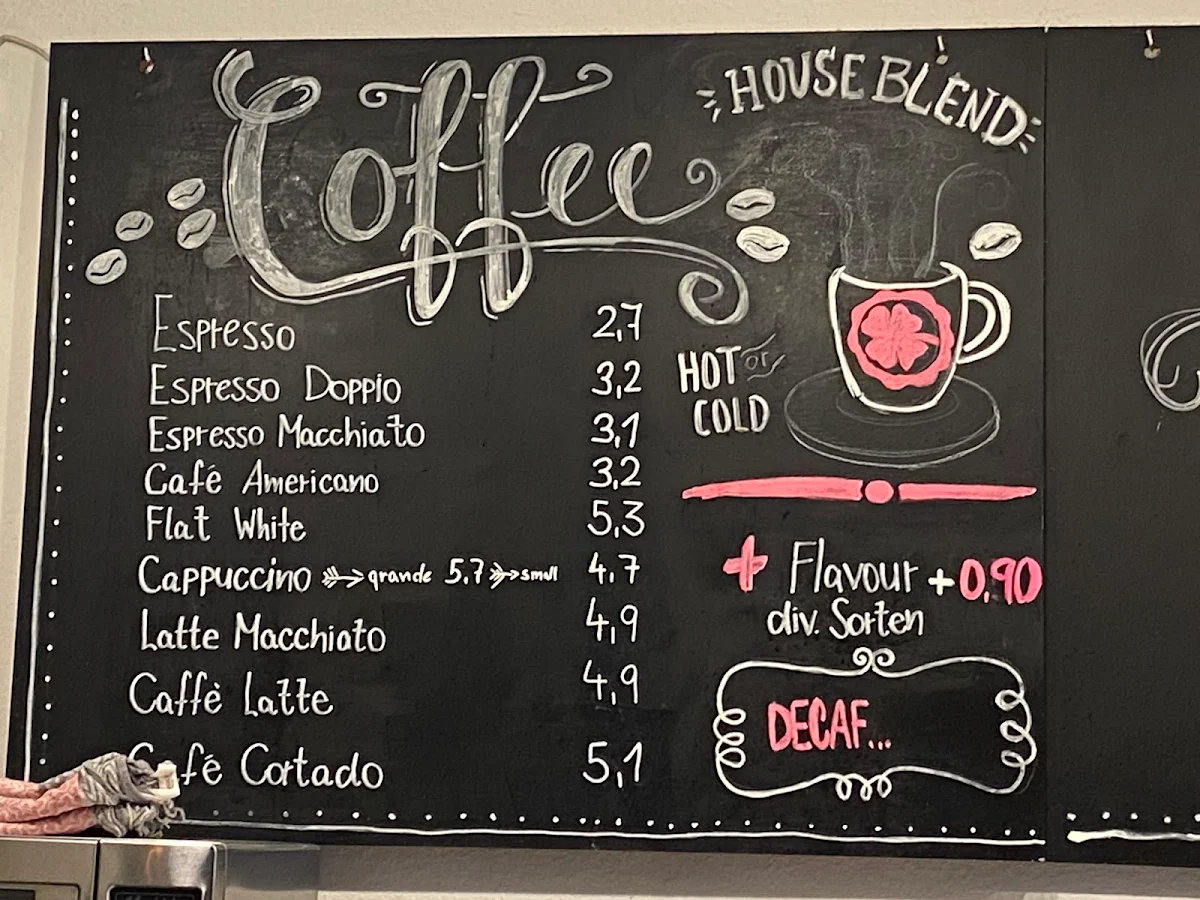 Coffee
Espresso 2,7
Espresso Doppio 3,2
Espresso Macchiato 3,1
Café Americano 3,2
Flat White 5,3
Cappuccino grande 5,7 small 4,7
Latte Macchiato 4,9
Caffè Latte 4,9
Café Cortado 5,1
HOUSE BLEND
HOT or
COLD
+ Flavour +0,90
div. Sorten
DECAF...